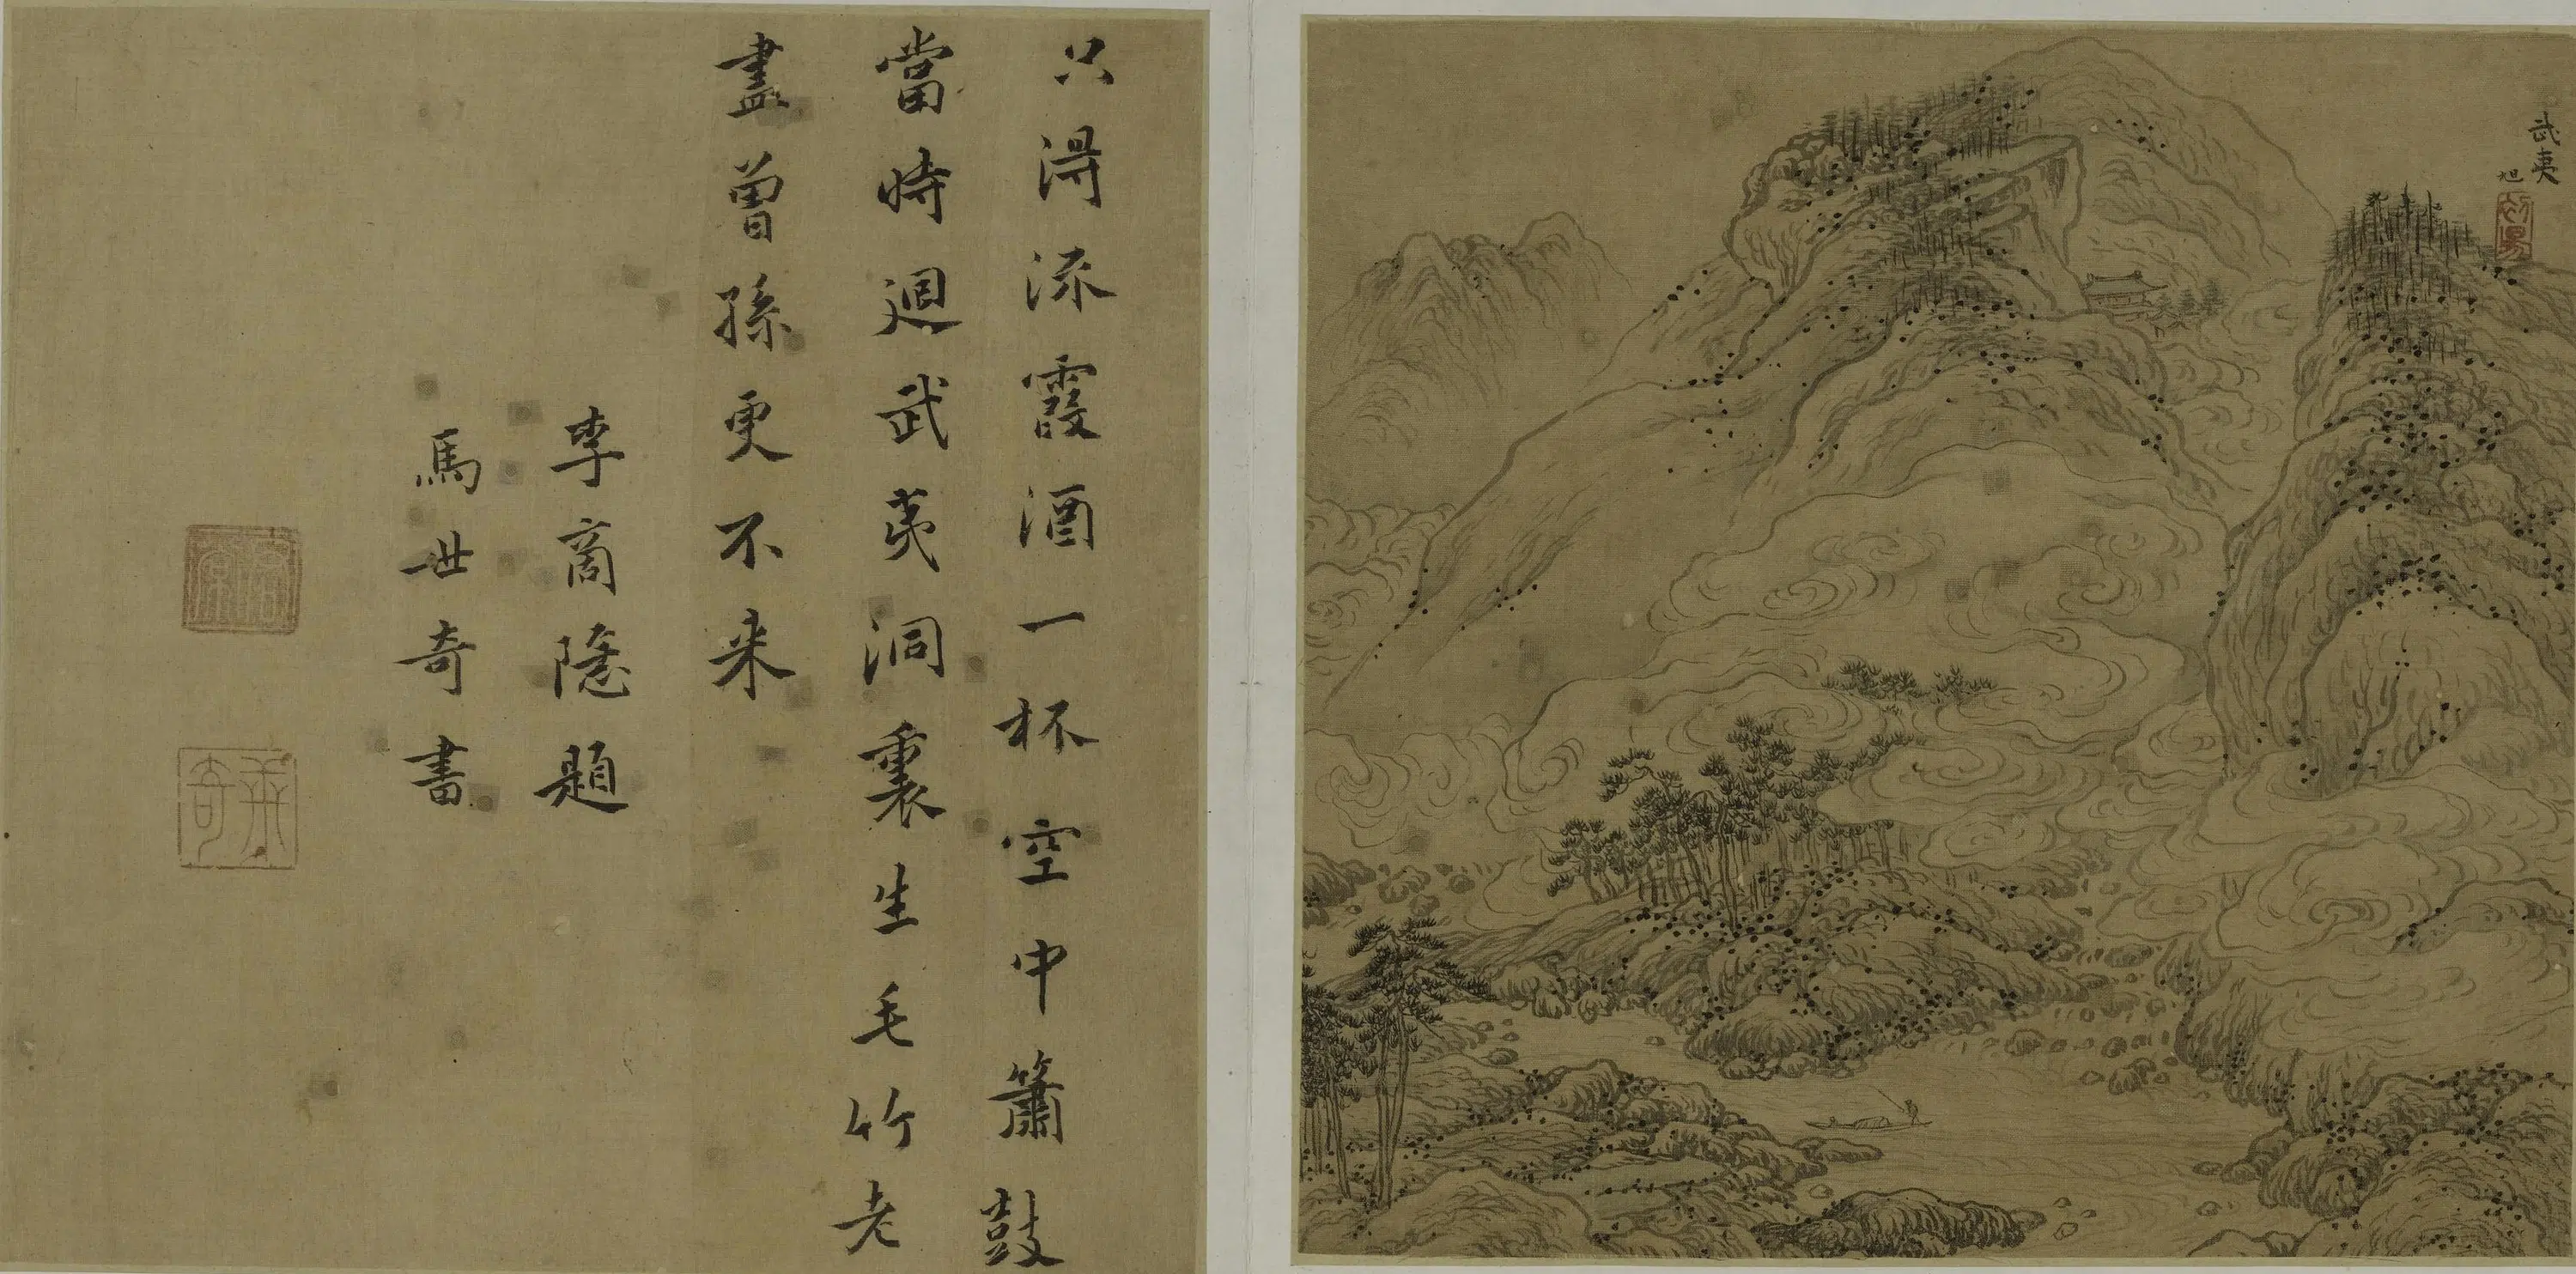 武夷
旭
只得流霞酒一杯空中簫鼓
當時迴武夷洞裏生毛竹老
盡曾孫更不来
李商隱題
馬世奇書